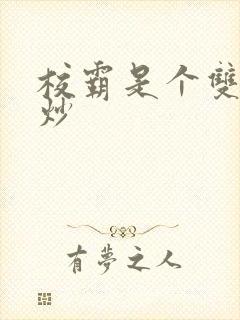 校霸是个雙
炒
有夢之人